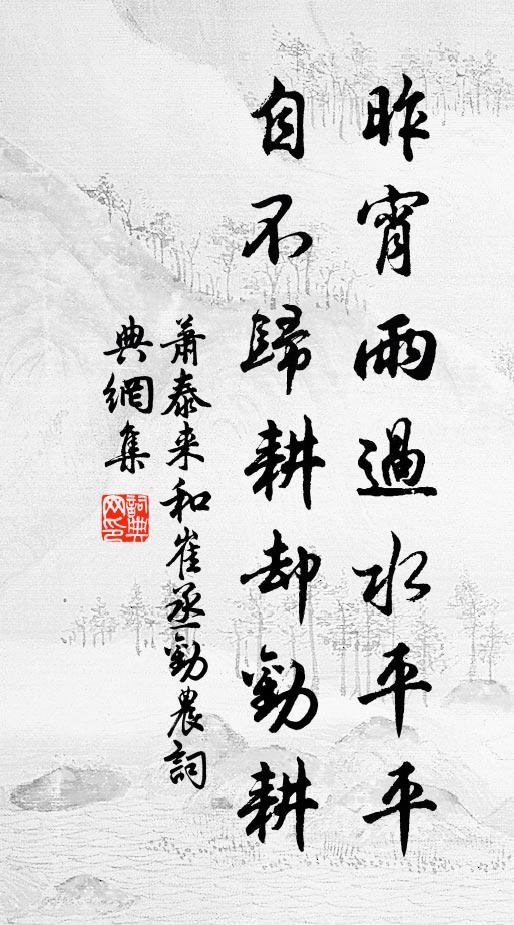 昨宵雨過水平平
自不歸耕却勸耕
蕭泰来和崔丞勸農詞
典網集
詞典網印